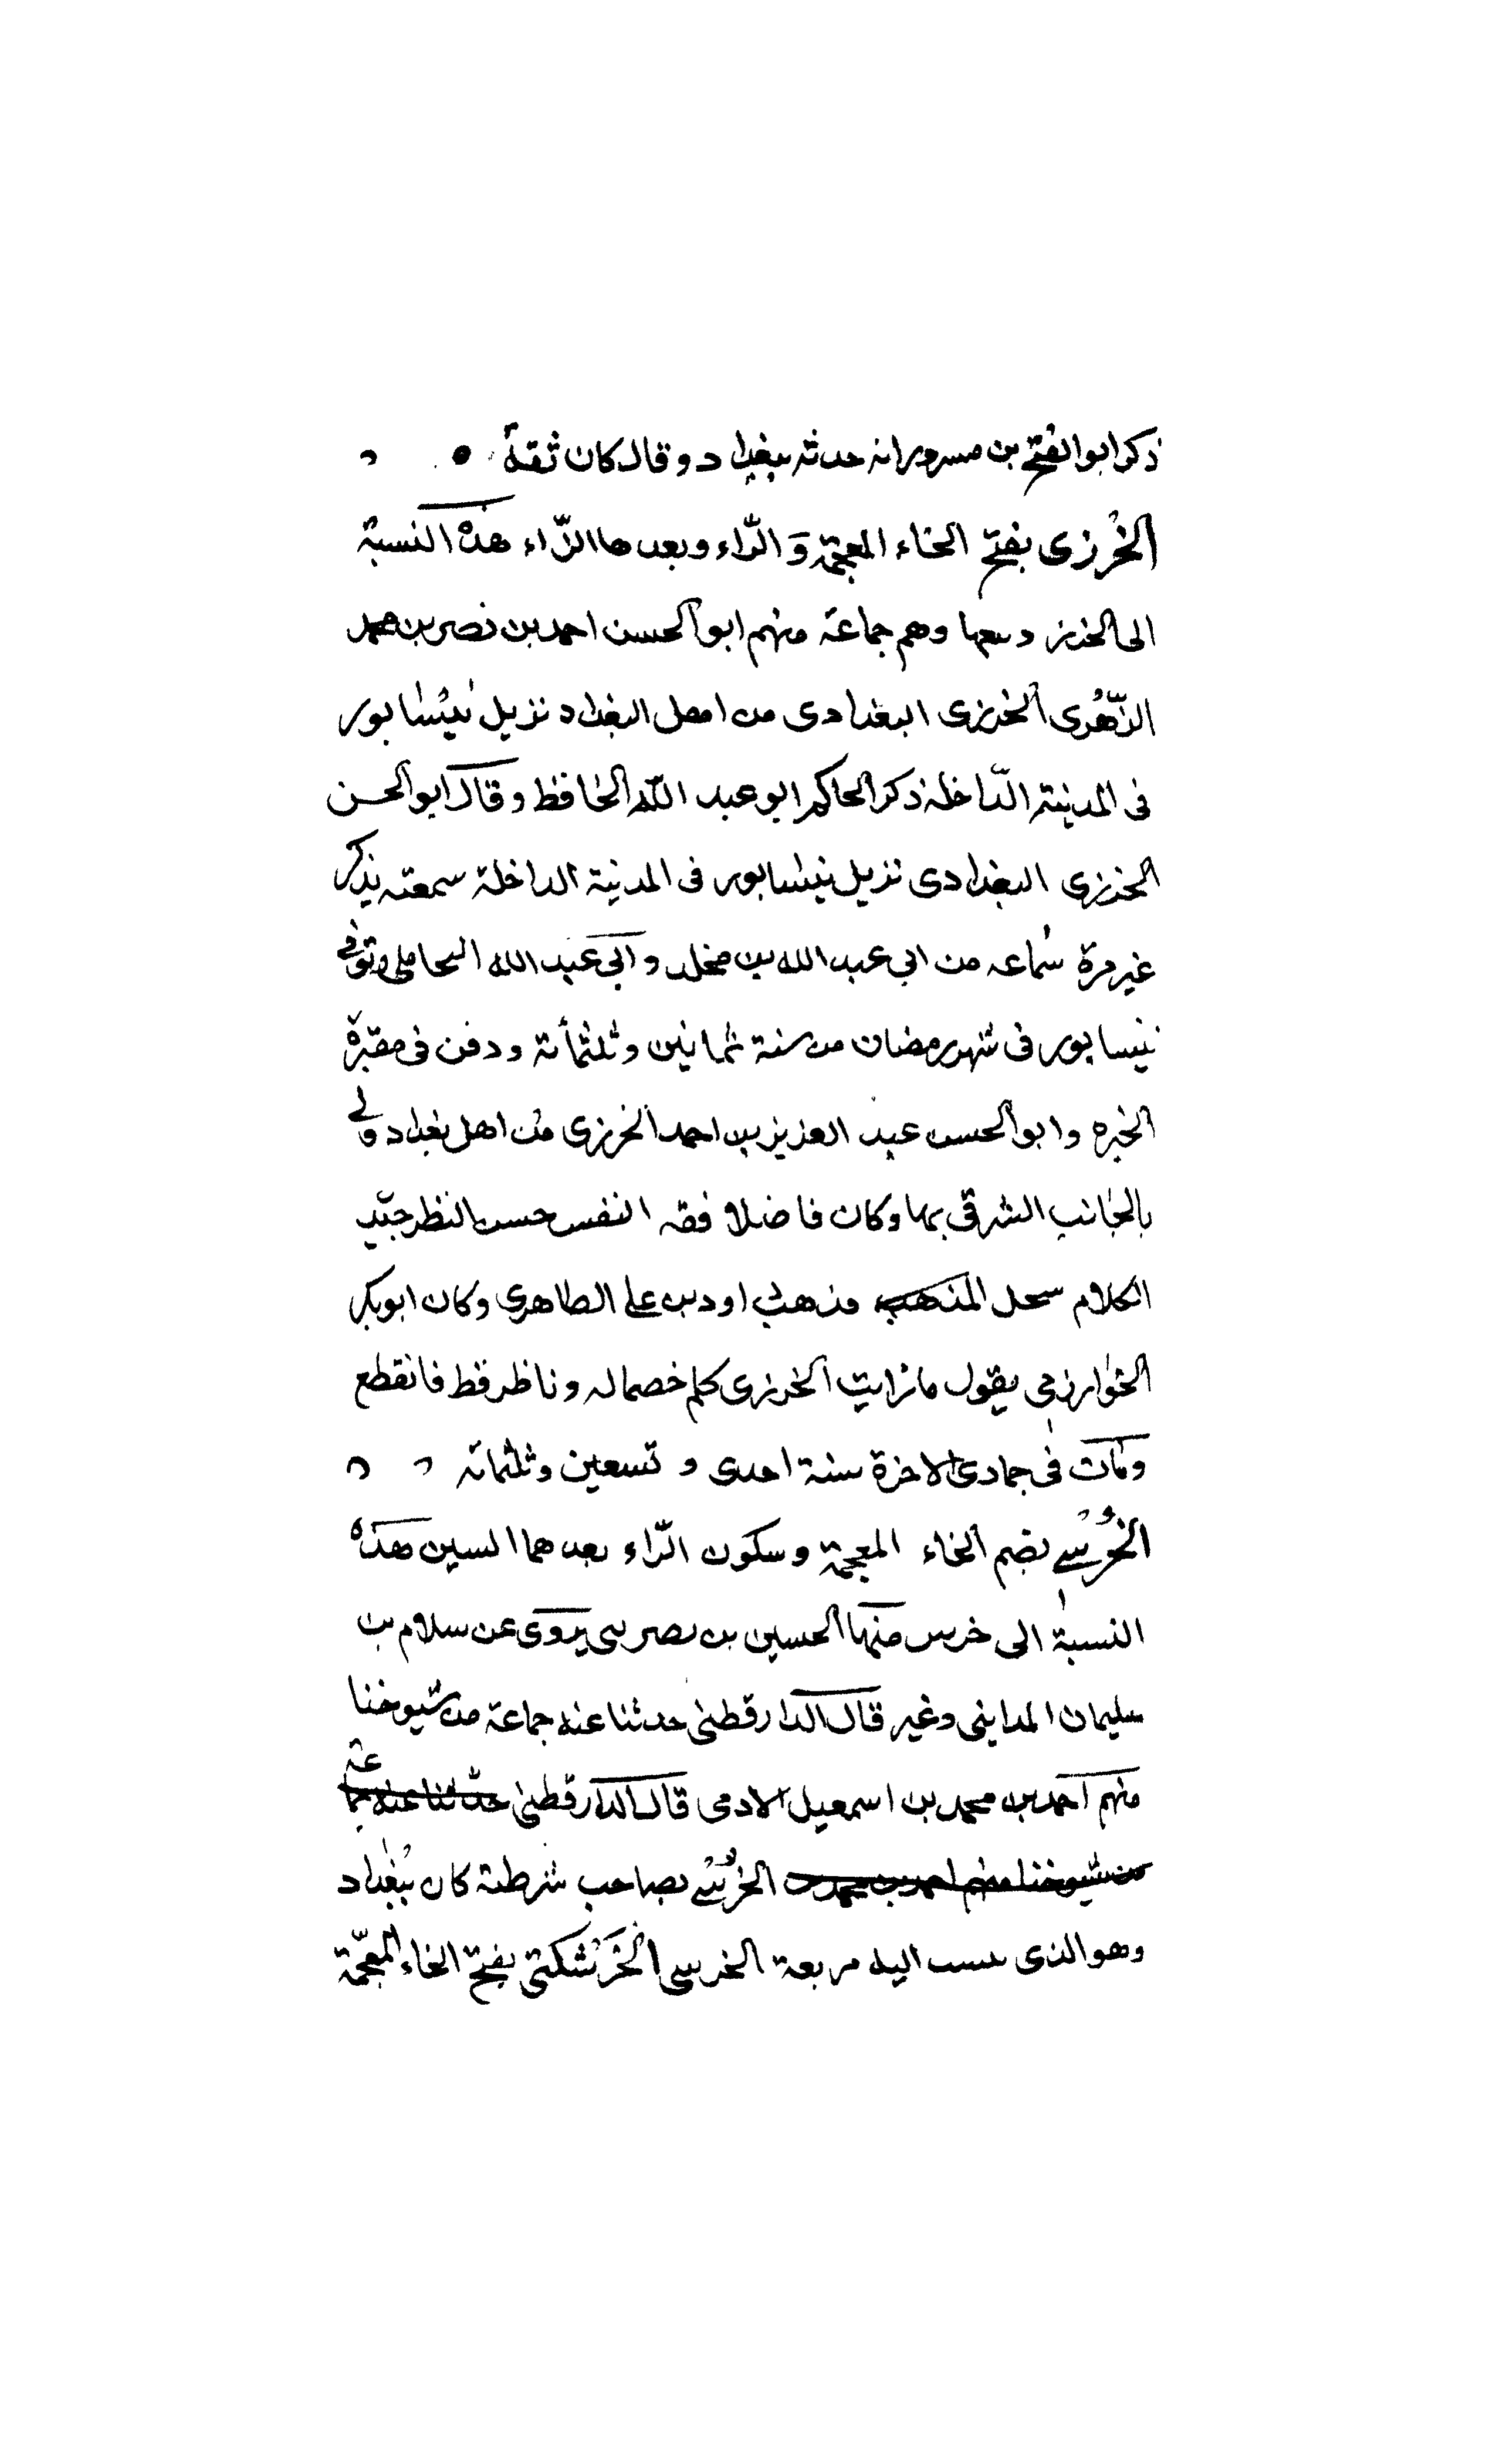 ذكر ابو الفتح بن مسرور انه حدثه ببغداد وقال كان ثقة
الخرزى بفتح الخاء المعجمة والراء وبعدها الزاء هذه النسبة
الى الخرز وبيعها وهم جماعة منهم ابو الحسن احمد بن نصر بن محمد
الزهرى الخرزى البغدادى من اهل البغداد نزيل نيسابور
فى المدينة الداخلة ذكر الحاكم ابو عبد الله الحافظ وقال ابو الحسن
الخرزى البغدادى نزيل نيسابور فى المدينة الداخلة سمعته يذكر
غير مرة سماعه من ابى عبد الله بن مخلد وابى عبد الله المحاملى وتوفى
نيسابور فى شهر رمضان من سنة ثمانين وثلثمأئة ودفن فى مقبرة
الخيره وابو الحسن عبد العزيز بن احمد الخرزى من اهل بغداد ولى
بالجانب الشرقى بها وكان فاضلا فقه النفس حسن النظر جيد
الكلام سحل المذهب مذهب اود بن على الظاهرى وكان ابو بكر
الخوارزمى يقول ما رايت الخرزى كلم خصما له وناظر قط فانقطع
ومات فى جمادى الاخرة سنة احدى وتسعين وثلثمائة
الخرسى بضم الخاء المعجمة وسكون الراء بعدهما السين هذه
النسبة الى خرس منها الحسين بن نصرسى يروى عن سلام بن
سليمان المداينى وغير قال الدارقطنى حدثنا عنه جماعة من شيوخنا
منهم احمد بن محمد بن اسمعيل الادمى قال الدارقطنى حدثنا عنه جماعة
من شيوخنا منهم احمد بن محمد بن الخرسى بصاحب شرطة كان ببغداد
وهو الذى ينسب اليه مربعة الخرسى الخرشكتى بفتح الخاء المعجمة